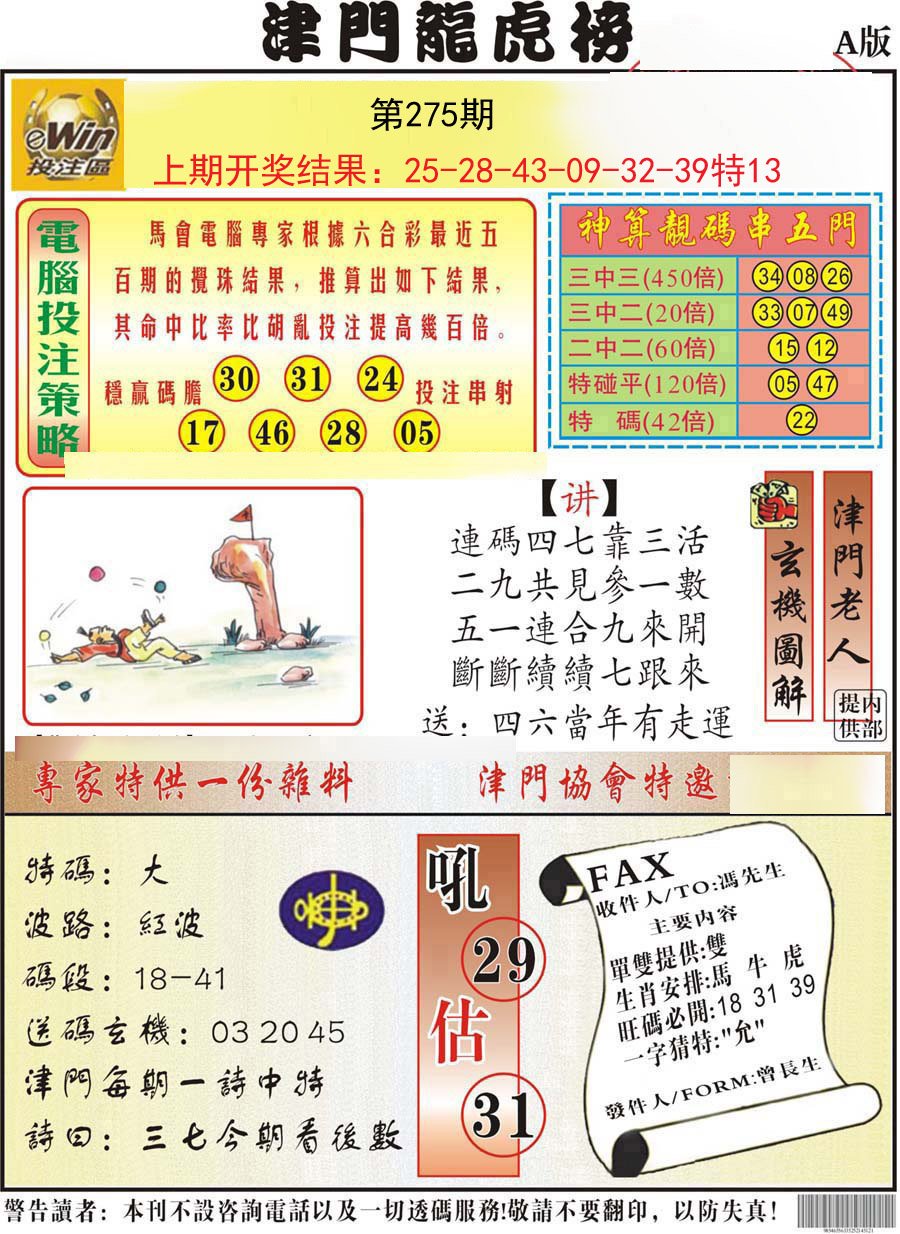 津門龍虎榜
A版
eWin
投注區
第275期
上期开奖结果：25-28-43-09-32-39特13
電腦投注策略
馬會電腦專家根據六合彩最近五
百期的攪珠結果，推算出如下結果，
其命中比率比胡亂投注提高幾百倍。
穩贏碼膽 30 31 24 投注串射
17 46 28 05
神算靚碼串五門
三中三(450倍) 34 08 26
三中二(20倍) 33 07 49
二中二(60倍) 15 12
特碰平(120倍) 05 47
特 碼(42倍) 22
【讲】
連碼四七靠三活
二九共見參一數
五一連合九來開
斷斷續續七跟來
送：四六當年有走運
玄機圖解
津門老人
内部
提供
專家特供一份雜料
津門協會特邀
特碼：大
波路：紅波
碼段：18-41
送碼玄機：03 20 45
津門每期一詩中特
詩曰：三七今期看後數
吼
29
估
31
FAX
收件人/TO:馮先生
主要内容
單雙提供:雙
生肖安排:馬 牛 虎
旺碼必開:18 31 39
一字猜特:"允"
發件人/FORM:曾長生
警告讀者：本刊不設咨詢電話以及一切透碼服務!敬請不要翻印，以防失真!